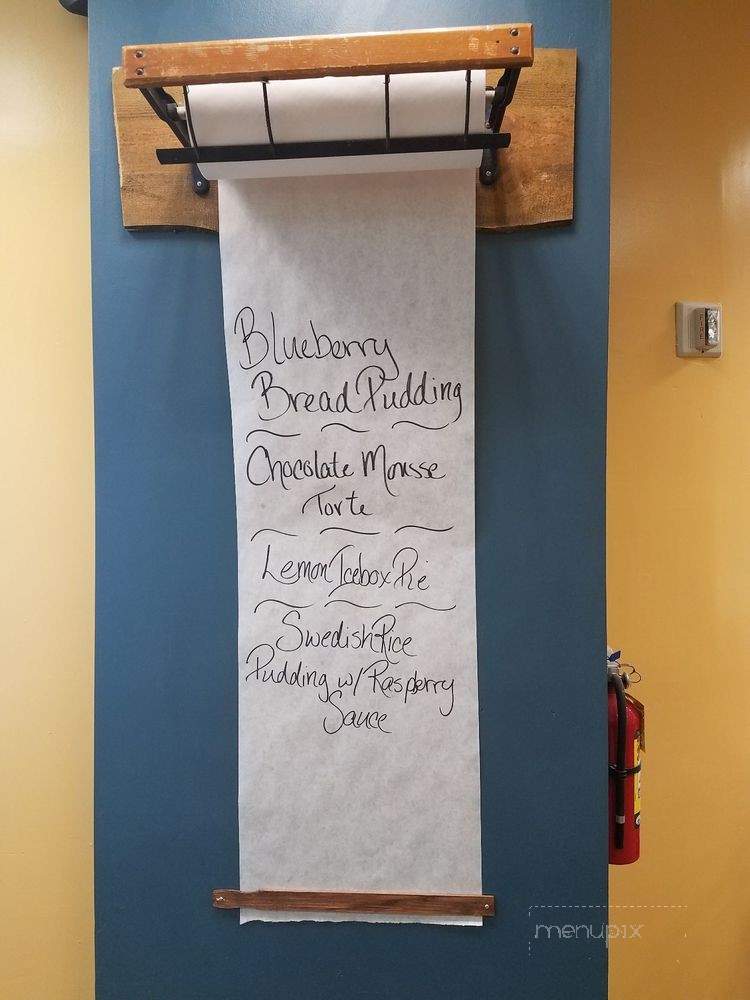 Blueberry
Bread Pudding
Chocolate Mousse
Torte
Lemon Icebox Pie
Swedish Rice
Pudding w/ Raspberry
Sauce
menupix